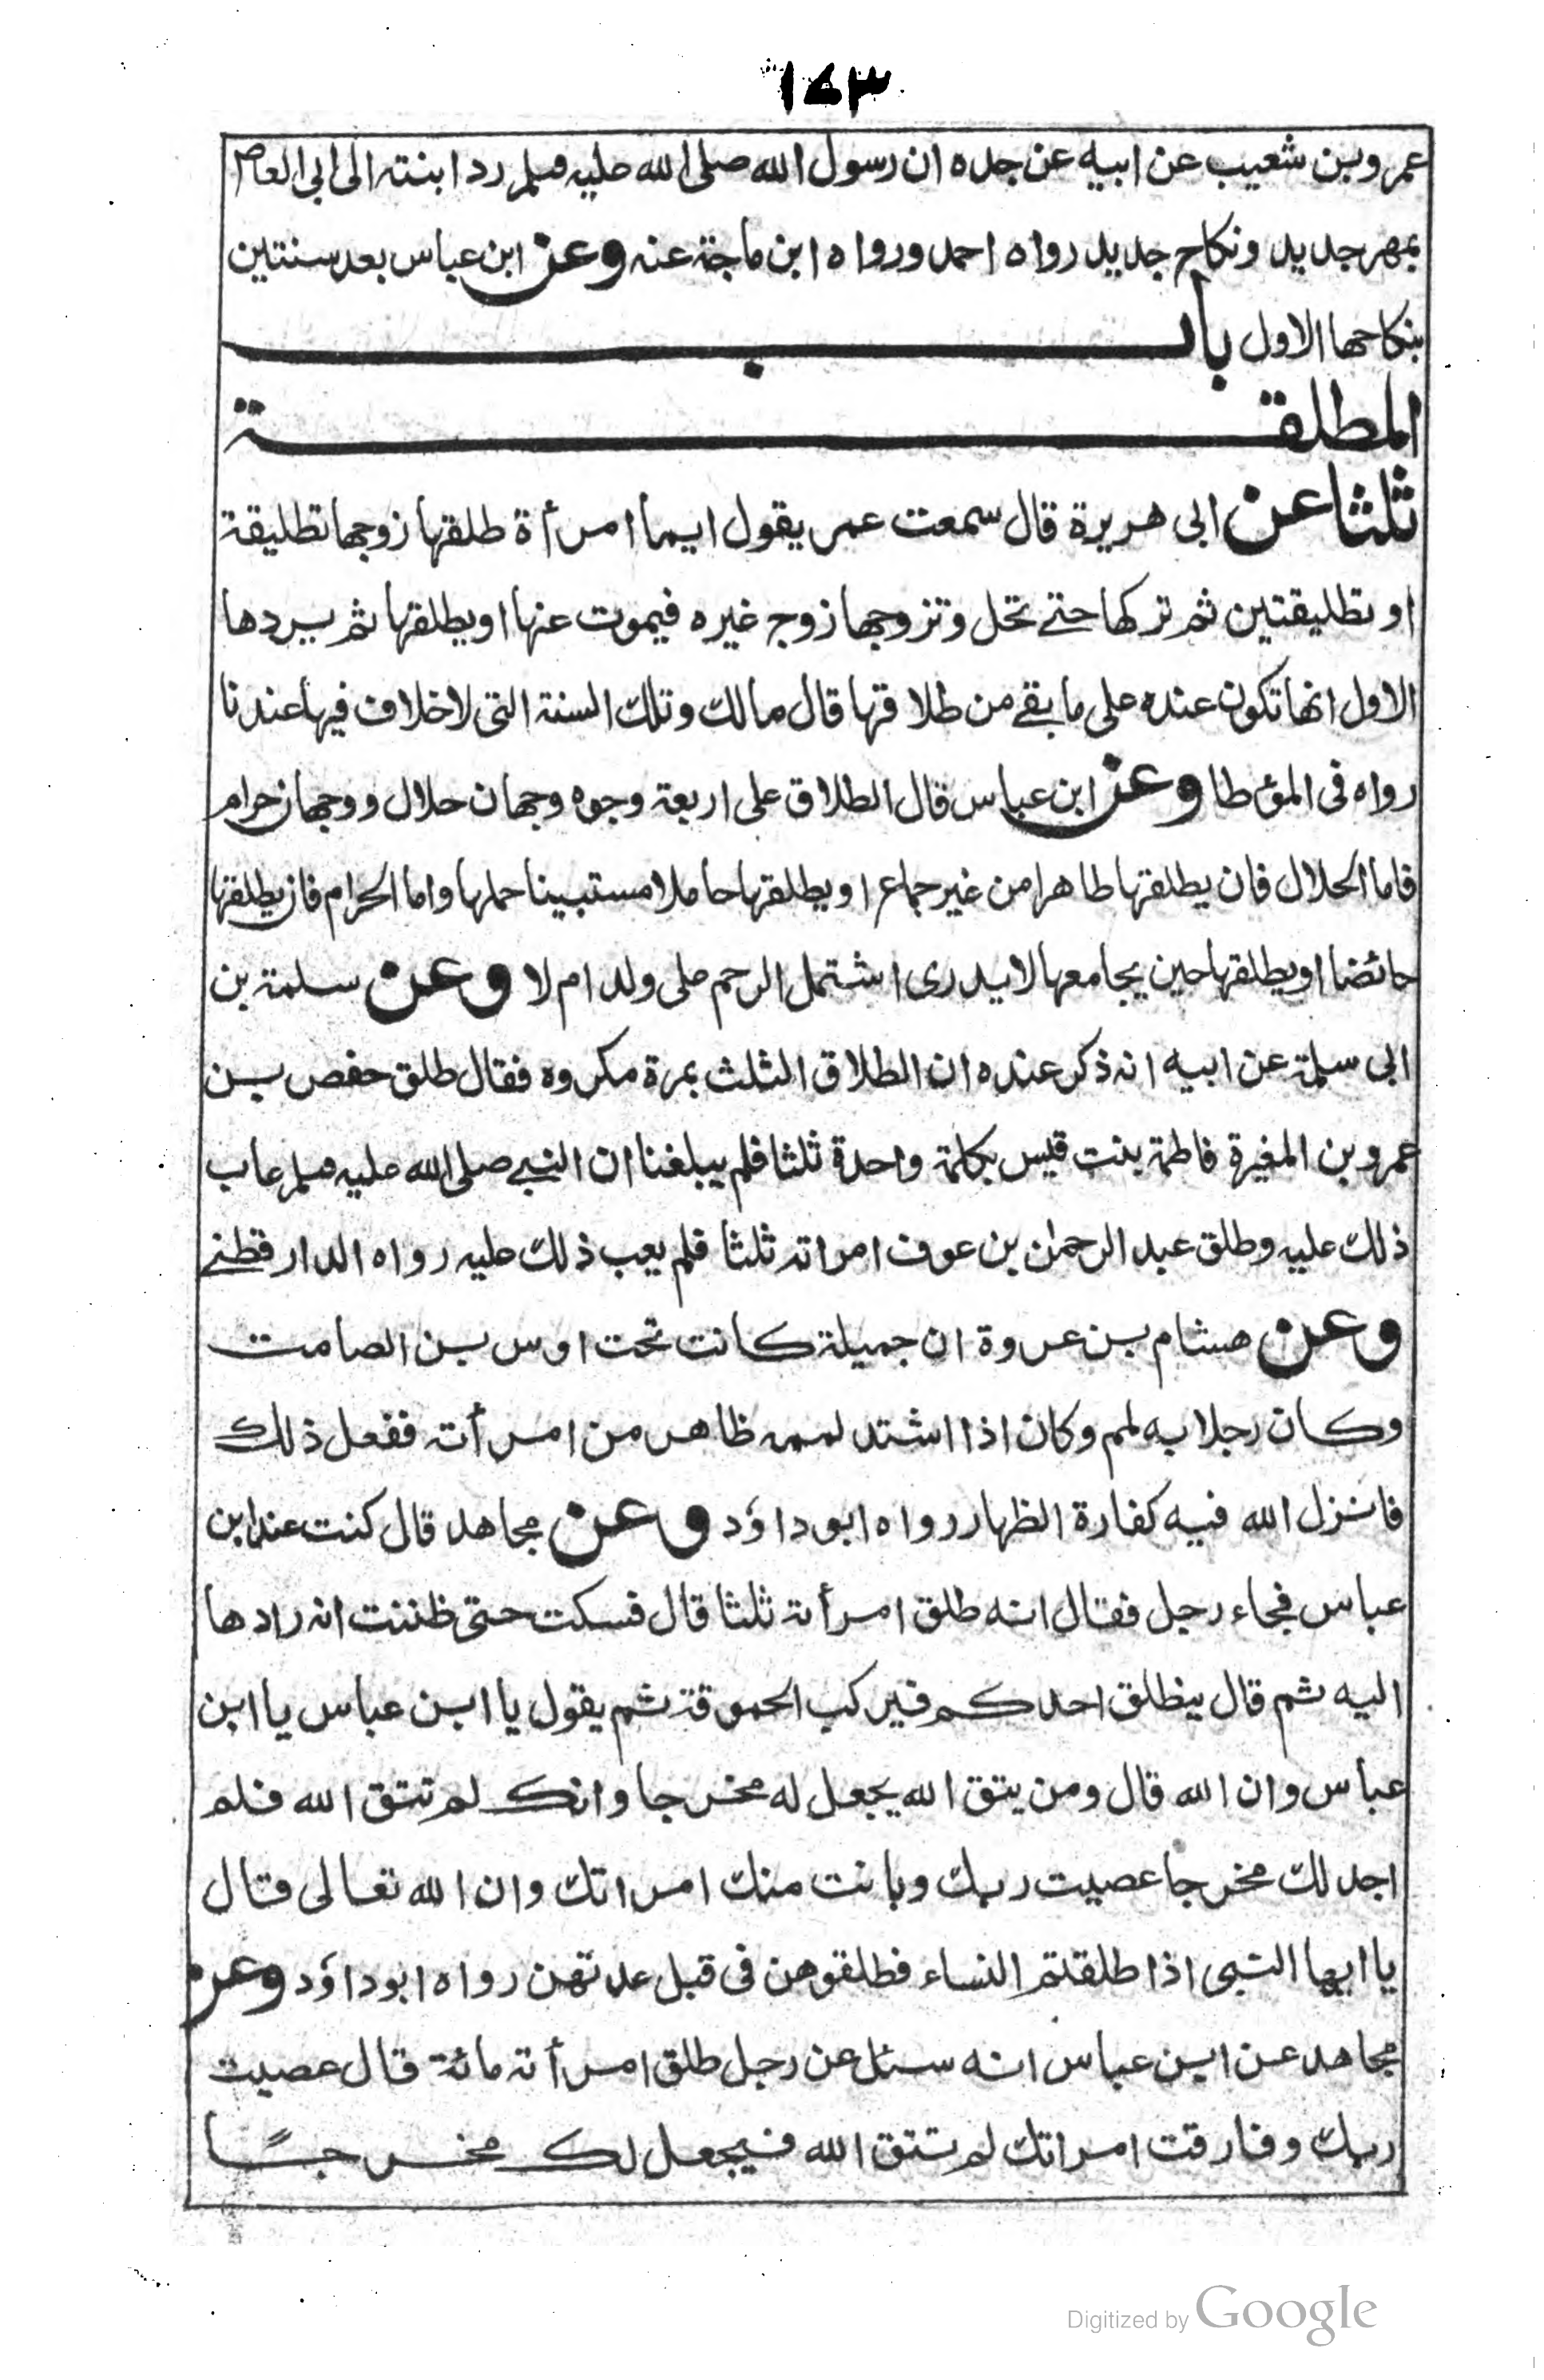 ١٤٣
عمرو بن شعيب عن ابيه عن جده ان رسول الله صلى الله عليه وسلم رد ابنته الى ابى العاص
بمهر جديد ونكاح جديد رواه احمد ورواه ابن ماجة عنه وعن ابن عباس بعد سنتين
بنكاحها الاول باب
المطلقة
ثلثا عن ابى هريرة قال سمعت عمر يقول ايما امرأة طلقها زوجها تطليقة
او تطليقتين ثم تركها حتے تحل وتزوجها زوج غيره فيموت عنها او يطلقها ثم يردها
الاول انها تكون عنده على ما بقے من طلاقها قال مالك وتلك السنة التى لا خلاف فيها عندنا
رواه فى المؤطا وعن ابن عباس قال الطلاق على اربعة وجوه وجهان حلال ووجهان حرام
فاما الحلال فان يطلقها طاهرا من غير جماع او يطلقها حاملا مستبينا حملها واما الحرام فان يطلقها
حائضا او يطلقها حين يجامعها لا يدرى اشتمل الرحم على ولد ام لا وعن سلمة بن
ابى سلمة عن ابيه انه ذكر عنده ان الطلاق الثلث بمرة مكروه فقال طلق حفص بن
عمرو بن المغيرة فاطمة بنت قيس بكلمة واحدة ثلثا فلم يبلغنا ان النبے صلى الله عليه وسلم عاب
ذلك عليه وطلق عبد الرحمٰن بن عوف امراته ثلثا فلم يعب ذلك عليه رواه الدارقطنے
وعن هشام بن عروة ان جميلة كانت تحت اوس بن الصامت
وكان رجلا به لمم وكان اذا اشتد لممه ظاهر من امرأته ففعل ذلك
فانزل الله فيه كفارة الظهار رواه ابو داؤد وعن مجاهد قال كنت عند ابن
عباس فجاء رجل فقال انه طلق امرأته ثلثا قال فسكت حتى ظننت انه رادها
اليه ثم قال ينطلق احدكم فيركب الحموقة ثم يقول يا ابن عباس يا ابن
عباس وان الله قال ومن يتق الله يجعل له مخرجا وانك لم تتق الله فلم
اجد لك مخرجا عصيت ربك وبانت منك امراتك وان الله تعالى قال
يا ايها النبى اذا طلقتم النساء فطلقوهن فى قبل عدتهن رواه ابو داؤد وعن
مجاهد عن ابن عباس انه سئل عن رجل طلق امرأته مائة قال عصيت
ربك وفارقت امراتك لم تتق الله فيجعل لك مخرجًا
Digitized by Google